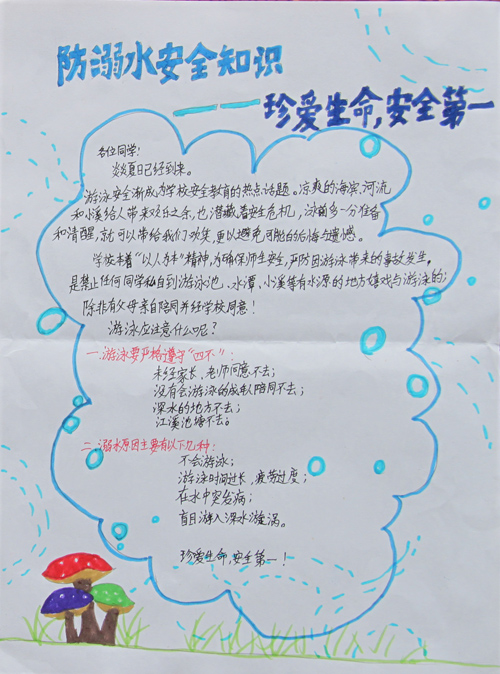 防溺水安全知识
——珍爱生命,安全第一
各位同学:
炎炎夏日已经到来。
游泳安全渐成为学校安全教育的热点话题。凉爽的海滨、河流
和小溪给人带来欢乐之余,也潜藏着安全危机,泳前多一分准备
和清醒,就可以带给我们欢笑,更以避免可能的后悔与遗憾。
学校本着“以人为本”精神,为确保师生安全,严防因游泳带来的事故发生,
是禁止任何同学私自到游泳池、水潭、小溪等有水源的地方嬉戏与游泳的;
除非有父母亲自陪同并经学校同意!
游泳应注意什么呢?
一.游泳要严格遵守“四不”:
未经家长、老师同意不去;
没有会游泳的成年人陪同不去;
深水的地方不去;
江溪池塘不去。
二.溺水原因主要有以下几种:
不会游泳;
游泳时间过长,疲劳过度;
在水中突发病;
盲目游入深水漩涡。
珍爱生命,安全第一!